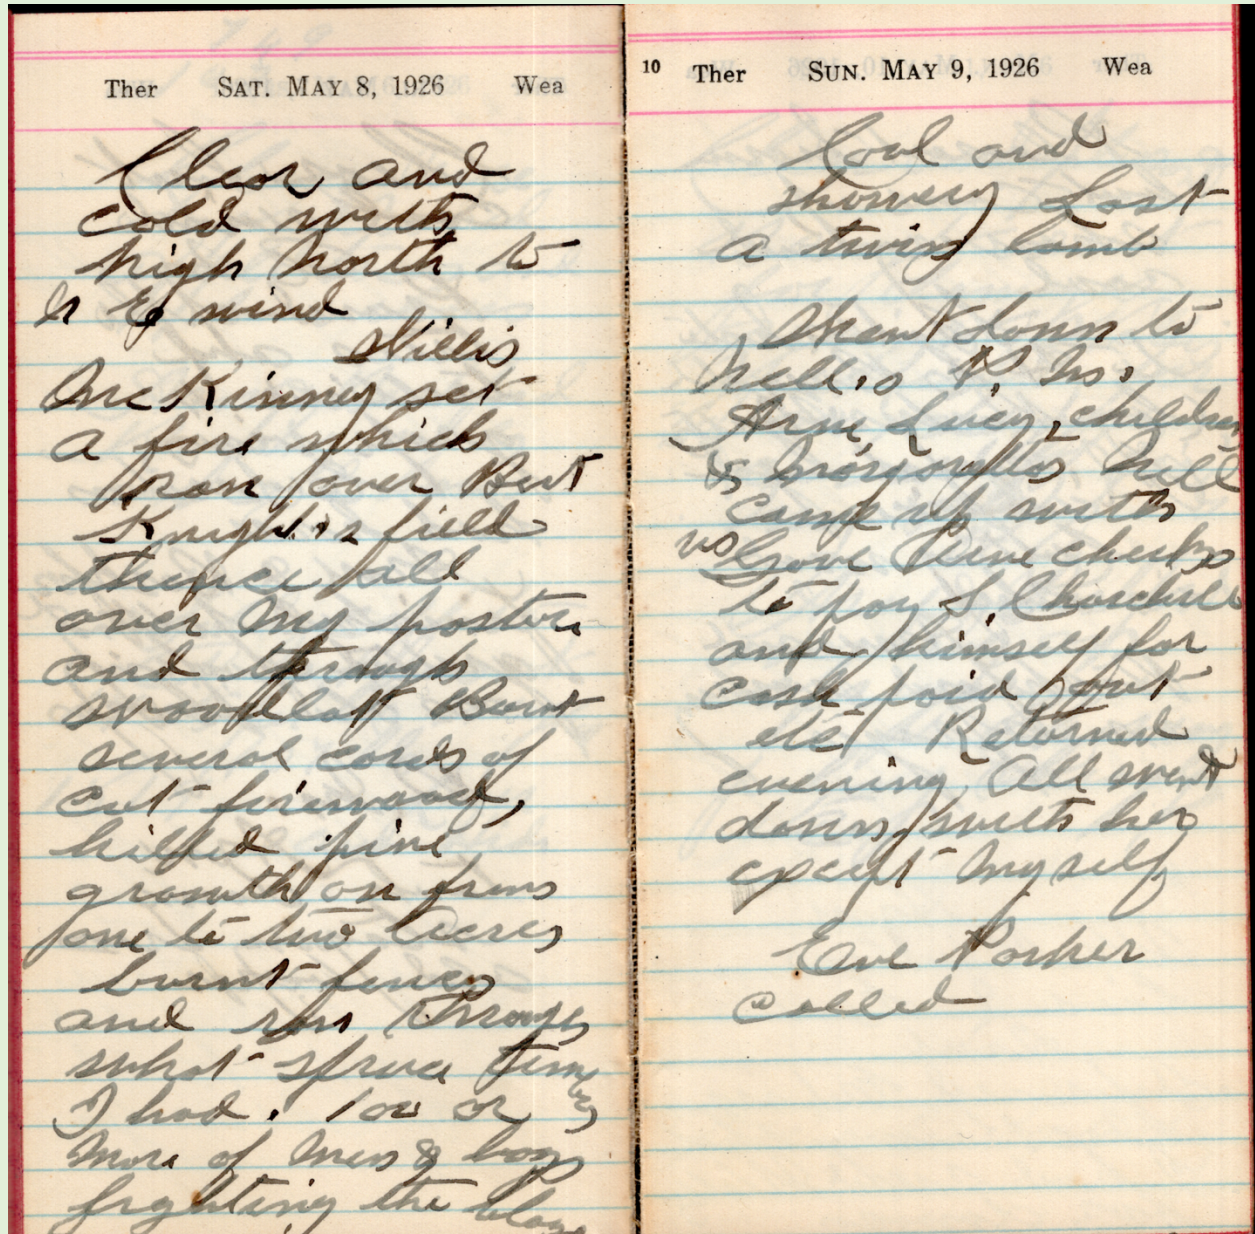 Ther SAT. MAY 8, 1926 Wea
Clear and
cold with
high North to
N E wind
Willis
McKinney set
a fire which
ran over Burt
Knight's field
thence all
over my pasture
and through
woodlot Burnt
several cords of
cut firewood,
killed pine
growth on from
one to two acres
burnt fences
and ran through
what spruce timber
I had. 100 or
more of men & boys
fighting the blaze
10 Ther SUN. MAY 9, 1926 Wea
Cool and
showery Lost
a twin lamb
Went down to
Nellie P.M.
Arne, Lucy, children
& Nell
came up with
us Gave Arne checks
to pay S. Churchill
and himself for
cash paid out
etc Returned
evening All went
down with her
except myself
Eve Parker
called